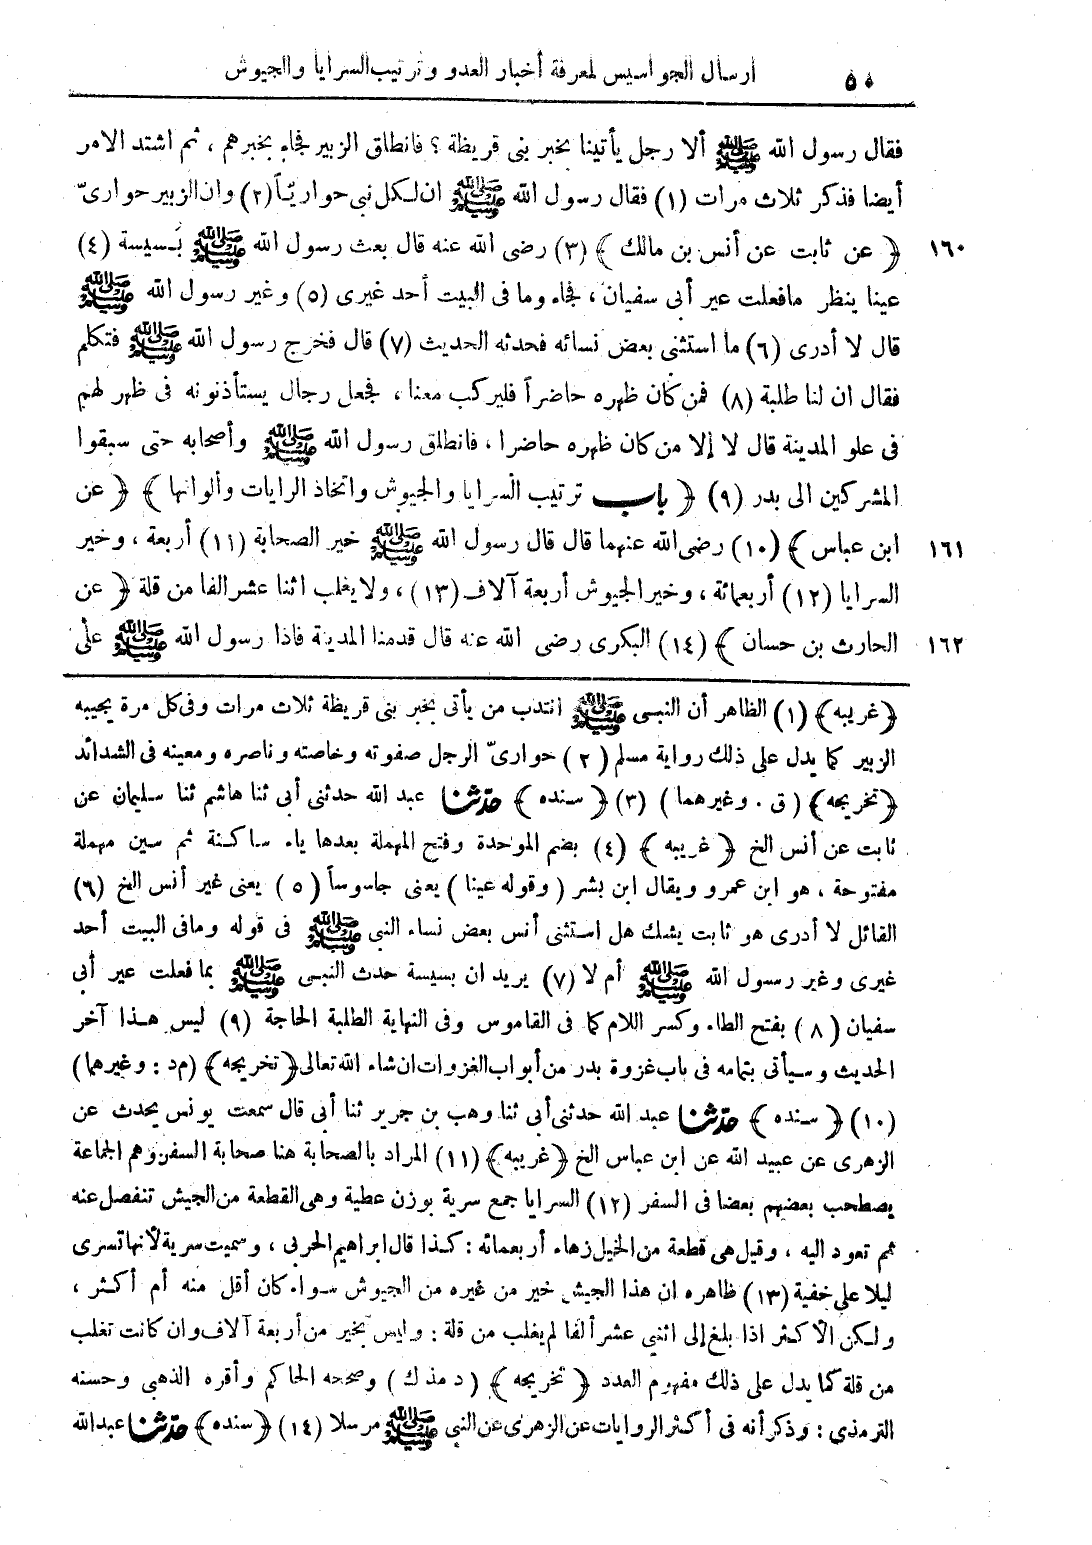 ٥٠ ارسال الجواسيس لمعرفة أخبار العدو وترتيب السرايا والجيوش
فقال رسول الله ﷺ ألا رجل يأتينا بخبر بنى قريظة ؟ فانطلق الزبير فجاء بخبرهم ، ثم اشتد الامر
أيضا فذكر ثلاث مرات (١) فقال رسول الله ﷺ ان لكل نبى حواريّاً (٢) وان الزبير حوارىّ
١٦٠ ﴿ عن ثابت عن أنس بن مالك ﴾ (٣) رضى الله عنه قال بعث رسول الله ﷺ بُسيسة (٤)
عينا ينظر مافعلت عير أبى سفيان ، فجاء وما فى البيت أحد غيرى (٥) وغير رسول الله ﷺ
قال لا أدرى (٦) ما استثنى بعض نسائه فحدثه الحديث (٧) قال فخرج رسول الله ﷺ فتكلم
فقال ان لنا طلبة (٨) فمن كان ظهره حاضراً فليركب معنا ، فجعل رجال يستأذنونه فى ظهر لهم
فى علو المدينة قال لا إلا من كان ظهره حاضرا ، فانطلق رسول الله ﷺ وأصحابه حتى سبقوا
المشركين الى بدر (٩) ﴿ باب ترتيب السرايا والجيوش واتخاذ الرايات وألوانها ﴾ ﴿ عن
١٦١ ابن عباس ﴾ (١٠) رضى الله عنهما قال قال رسول الله ﷺ خير الصحابة (١١) أربعة ، وخير
السرايا (١٢) أربعمائة ، وخير الجيوش أربعة آلاف (١٣) ، ولا يغلب اثنا عشر الفا من قلة ﴿ عن
١٦٢ الحارث بن حسان ﴾ (١٤) البكرى رضى الله عنه قال قدمنا المدينة فاذا رسول الله ﷺ على
﴿ غريبه ﴾ (١) الظاهر أن النبى ﷺ انتدب من يأتى بخبر بنى قريظة ثلاث مرات وفى كل مرة يجيبه
الزبير كما يدل على ذلك رواية مسلم (٢) حوارىّ الرجل صفوته وخاصته وناصره ومعينه فى الشدائد
﴿ تخريجه ﴾ ( ق . وغيرهما ) (٣) ﴿ سنده ﴾ حدثنا عبد الله حدثنى أبى ثنا هاشم ثنا سليمان عن
ثابت عن أنس الخ ﴿ غريبه ﴾ (٤) بضم الموحدة وفتح المهملة بعدها ياء ساكنة ثم سين مهملة
مفتوحة ، هو ابن عمرو ويقال ابن بشر ( وقوله عينا ) يعنى جاسوساً (٥) يعنى غير أنس الخ (٦)
القائل لا أدرى هو ثابت يشك هل استثنى أنس بعض نساء النبى ﷺ فى قوله ومافى البيت أحد
غيرى وغير رسول الله ﷺ أم لا (٧) يريد ان بسيسة حدث النبى ﷺ بما فعلت عير أبى
سفيان (٨) بفتح الطاء وكسر اللام كما فى القاموس وفى النهاية الطلبة الحاجة (٩) ليس هذا آخر
الحديث وسيأتى بتمامه فى باب غزوة بدر من أبواب الغزوات ان شاء الله تعالى ﴿ تخريجه ﴾ (م د : وغيرهما)
(١٠) ﴿ سنده ﴾ حدثنا عبد الله حدثنى أبى ثنا وهب بن جرير ثنا أبى قال سمعت يونس يحدث عن
الزهرى عن عبيد الله عن ابن عباس الخ ﴿ غريبه ﴾ (١١) المراد بالصحابة هنا صحابة السفر وهم الجماعة
يصطحب بعضهم بعضا فى السفر (١٢) السرايا جمع سرية بوزن عطية وهى القطعة من الجيش تنفصل عنه
ثم تعود اليه ، وقيل هى قطعة من الخيل زهاء أربعمائه : كذا قال ابراهيم الحربى ، وسميت سرية لأنها تسرى
ليلا على خفية (١٣) ظاهره ان هذا الجيش خير من غيره من الجيوش سواء كان أقل منه أم أكثر ،
ولكن الأكثر اذا بلغ إلى اثنى عشر ألفا لم يغلب من قلة : وليس بخير من أربعة آلاف وان كانت تغلب
من قلة كما يدل على ذلك مفهوم العدد ﴿ تخريجه ﴾ ( د مذ ك ) وصححه الحاكم وأقره الذهبى وحسنه
الترمذى : وذكر أنه فى أكثر الروايات عن الزهرى عن النبى ﷺ مرسلا (١٤) ﴿ سنده ﴾ حدثنا عبد الله